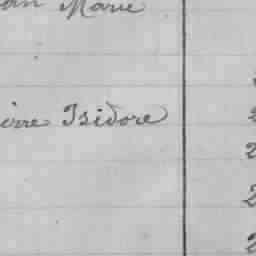 an Marie
ierre Isidore
2
2
2